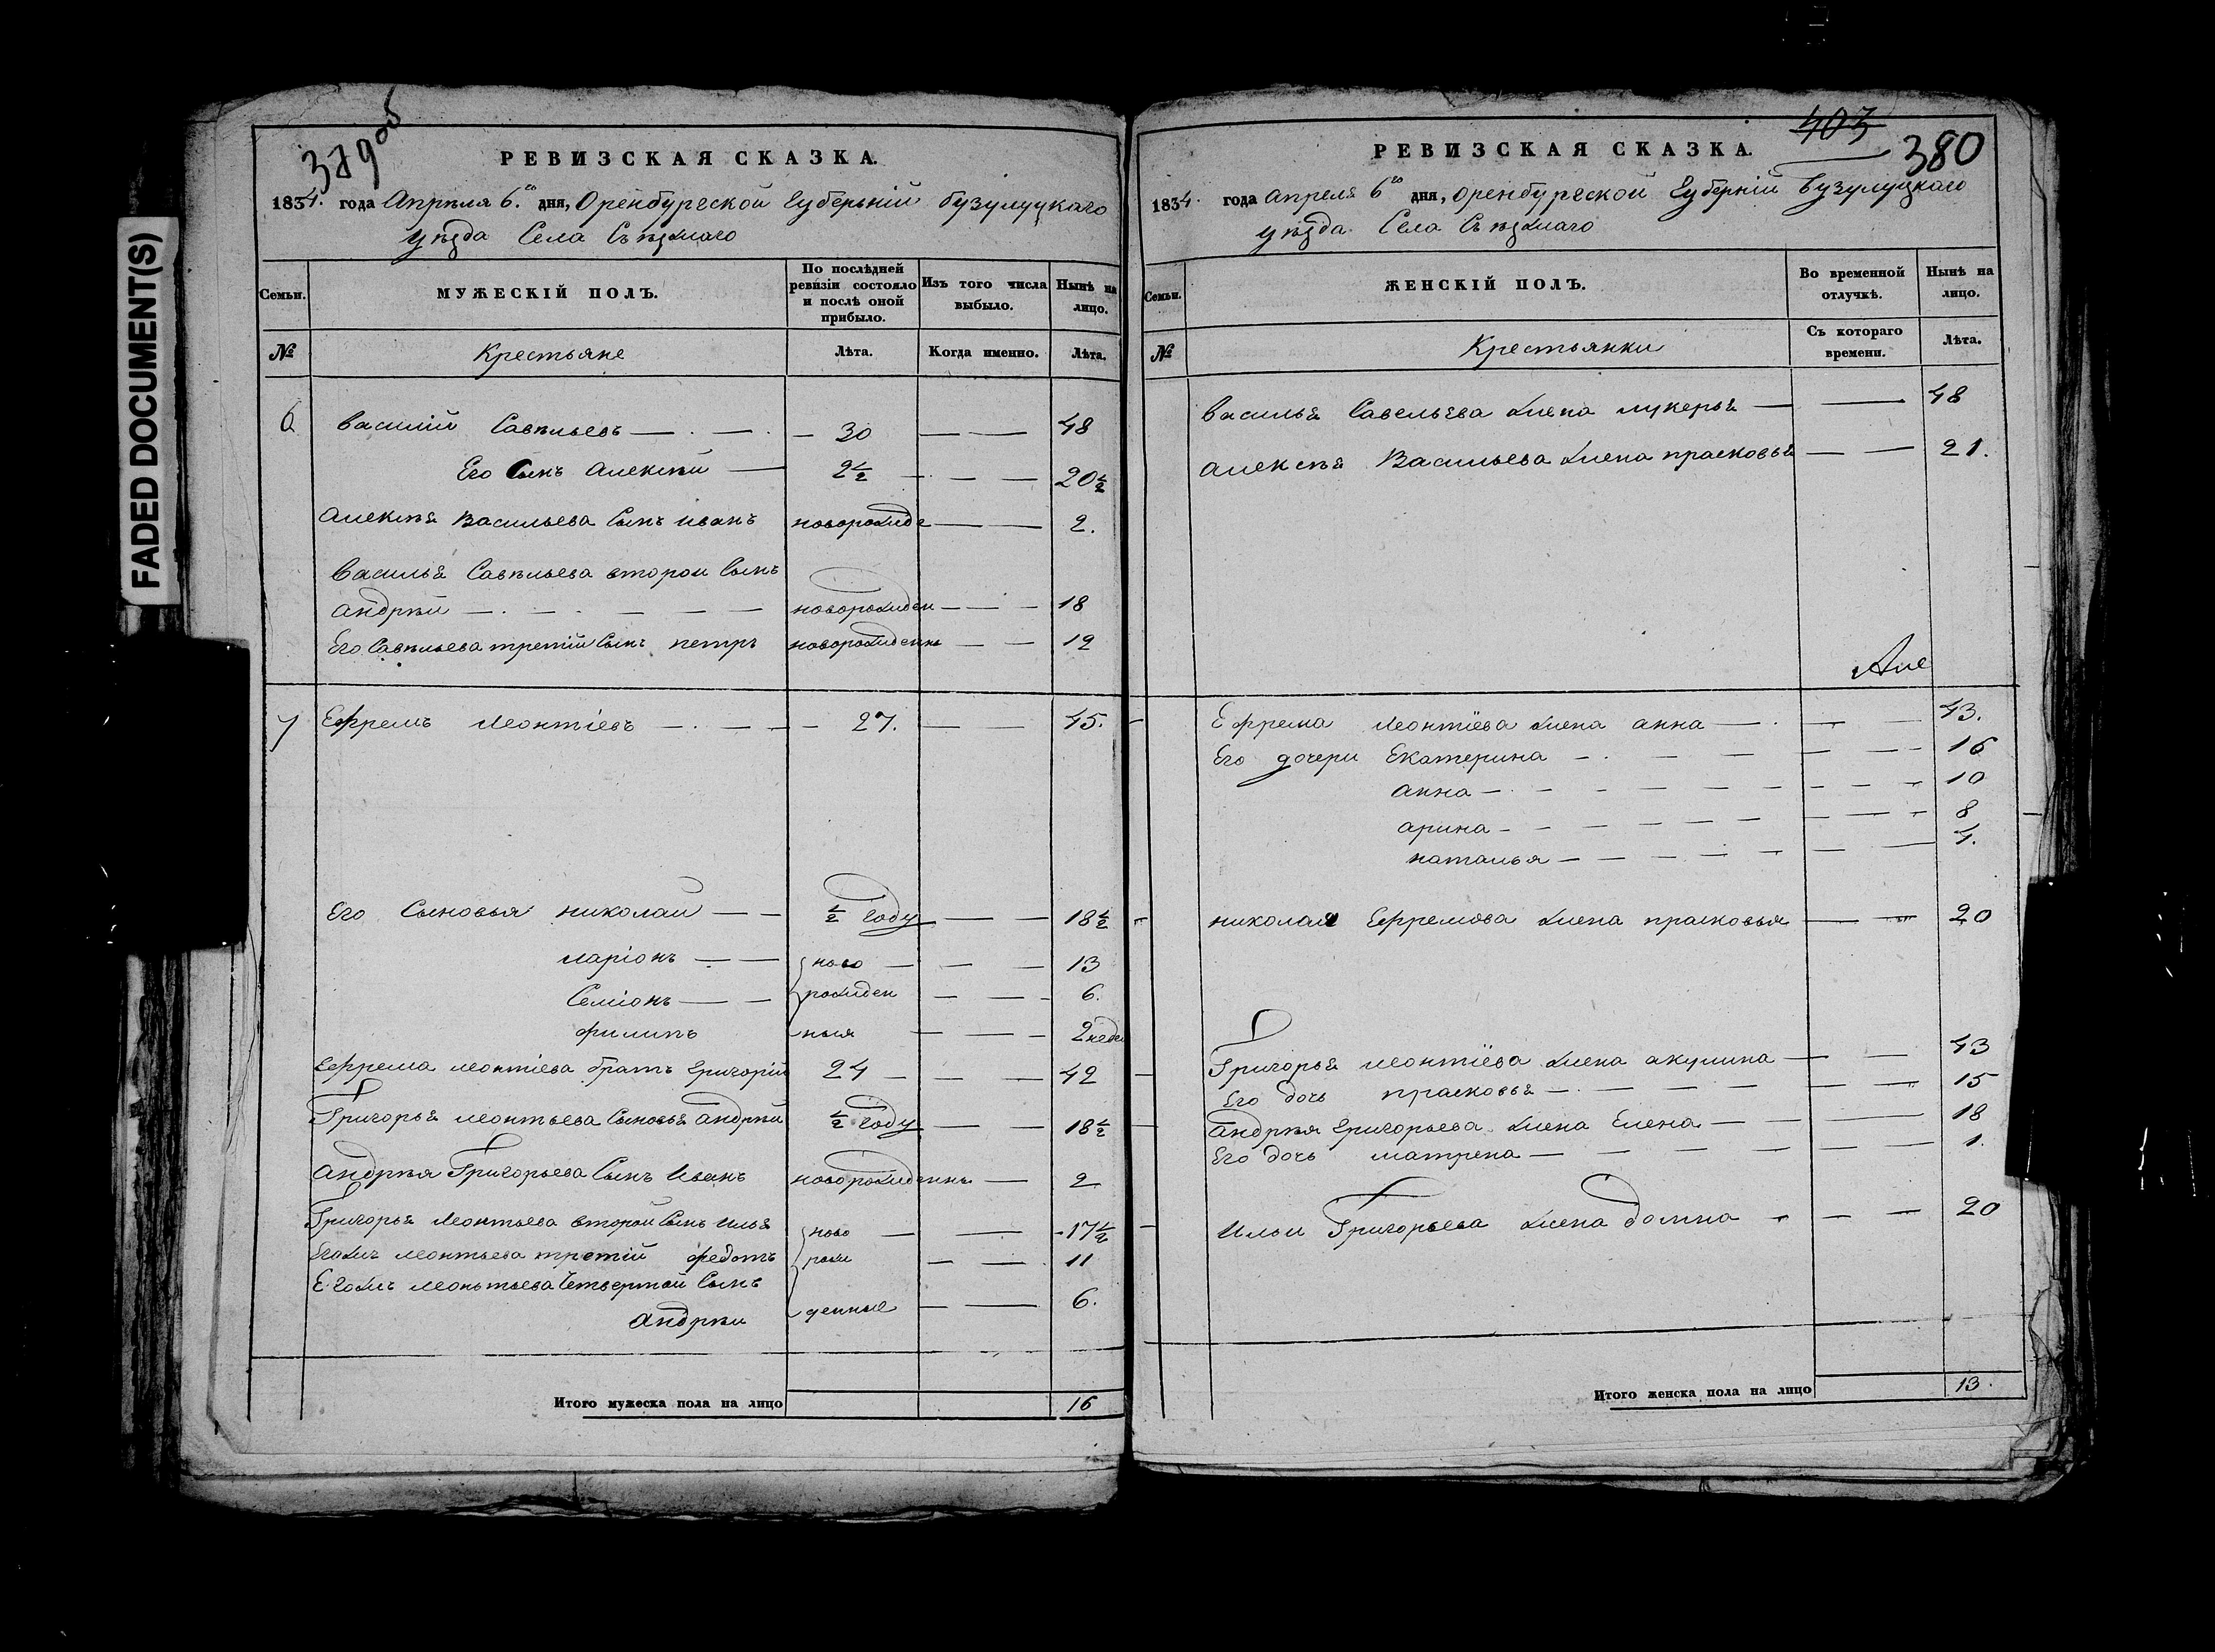 FADED DOCUMENT(S)
379об
РЕВИЗСКАЯ СКАЗКА.
1834. года Апрѣля 6.го дня, Оренбургской Губерьнiй бузулуцкаго
уѣзда Села Съѣзжаго
Семьи.
МУЖЕСКІЙ ПОЛЪ.
По послѣдней ревизіи состояло и послѣ оной прибыло.
Изъ того числа выбыло.
Нынѣ на лицо.
№
Крестьяне
Лѣта.
Когда именно.
Лѣта.
6 Василий Савѣльевъ — 30 — 48
Его Сынъ Алексѣй — 2 1/2 — 20 1/2
Алексѣя Васильева Сынъ иванъ новорожде — 2.
Василья Савѣльева второй Сынъ
андрѣй — новорожден — 18
Его Савѣльева третiй Сынъ петръ новорожденны — 12
7 Ефремъ Леонтiевъ — 27. — 45.
Его Сыновья николай — 1/2 году — 18 1/2
ларiонъ — ново — 13
Семiонъ — рожден — 6.
филипъ ныя — 2 неде
Ефрема леонтiева братъ григорiй 24 — 42
Григорья леонтьева Сыновья андрѣй 1/2 году — 18 1/2
андрѣя Григорьева Сынъ Иванъ новорожденны — 2
Григорья леонтьева второй Сынъ илья ново — 17 1/2
Егожъ леонтьева третiй федотъ рож — 11
Егожъ леонтьева четвертой Сынъ
андрѣй денные — 6.
Итого мужеска пола на лицо 16
403
380
РЕВИЗСКАЯ СКАЗКА.
1834. года апреля 6го дня, оренбургской Губернiй Бузулуцкаго
уѣзда Села Съѣзжаго
Семьи.
ЖЕНСКІЙ ПОЛЪ.
Во временной отлучкѣ.
Нынѣ на лицо.
№
Крестьянки
Съ котораго времени.
Лѣта.
Василья Савельева жена лукерья — 48
алексѣя Васильева жена прасковья — 21.
Але
Ефрема леонтiева жена анна — 43.
Его дочери Екатерина — 16
анна — 10
арина — 8
наталья — 4.
николая Ефремова жена прасковья — 20
Григорья леонтiева жена акулина — 43
Его дочь прасковья — 15
андрѣя григорьева жена Елена — 18
Его дочь матрена — 1.
Ильи Григорьева жена домна — 20
Итого женска пола на лицо 13.